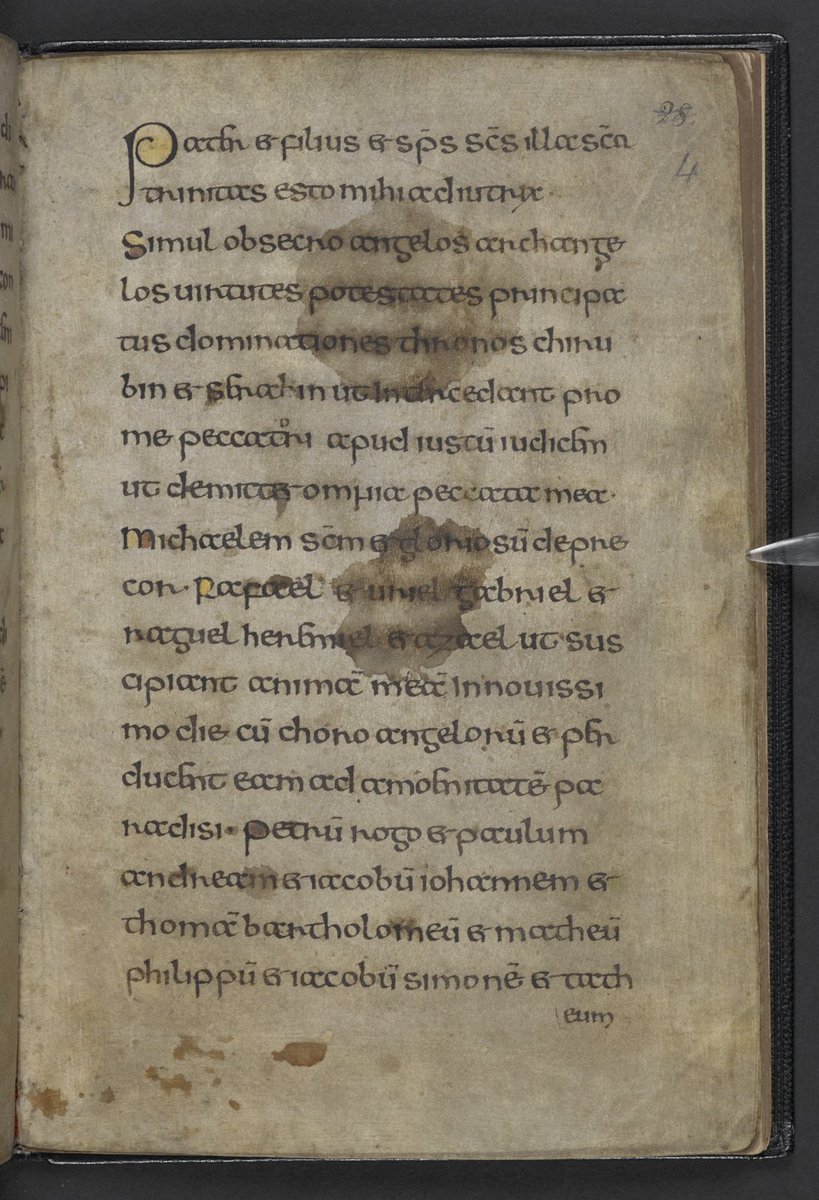 28
4
Pater & filius & sp̄s sc̄s illa sc̄a
trinitas esto mihi adiutrix
Simul obsecro angelos archange
los uirtutes potestates principa
tus dominationes thronos chiru
bin & seraphin ut intercedant pro
me peccatori apud iustū iudicem
ut demittet omnia peccata mea·
Michaelem sc̄m & gloriosū depre
cor· Rafael & uriel gabriel &
raguel heremiel & azael ut sus
cipiant animā meā in nouissi
mo die cū choro angelorū & per
ducent eam ad amoenitatē pa
radisi· Petrū rogo & paulum
andream & iacobū iohannem &
thomā bartholomeū & matheū
philippū & iacobū simonē & tath
eum